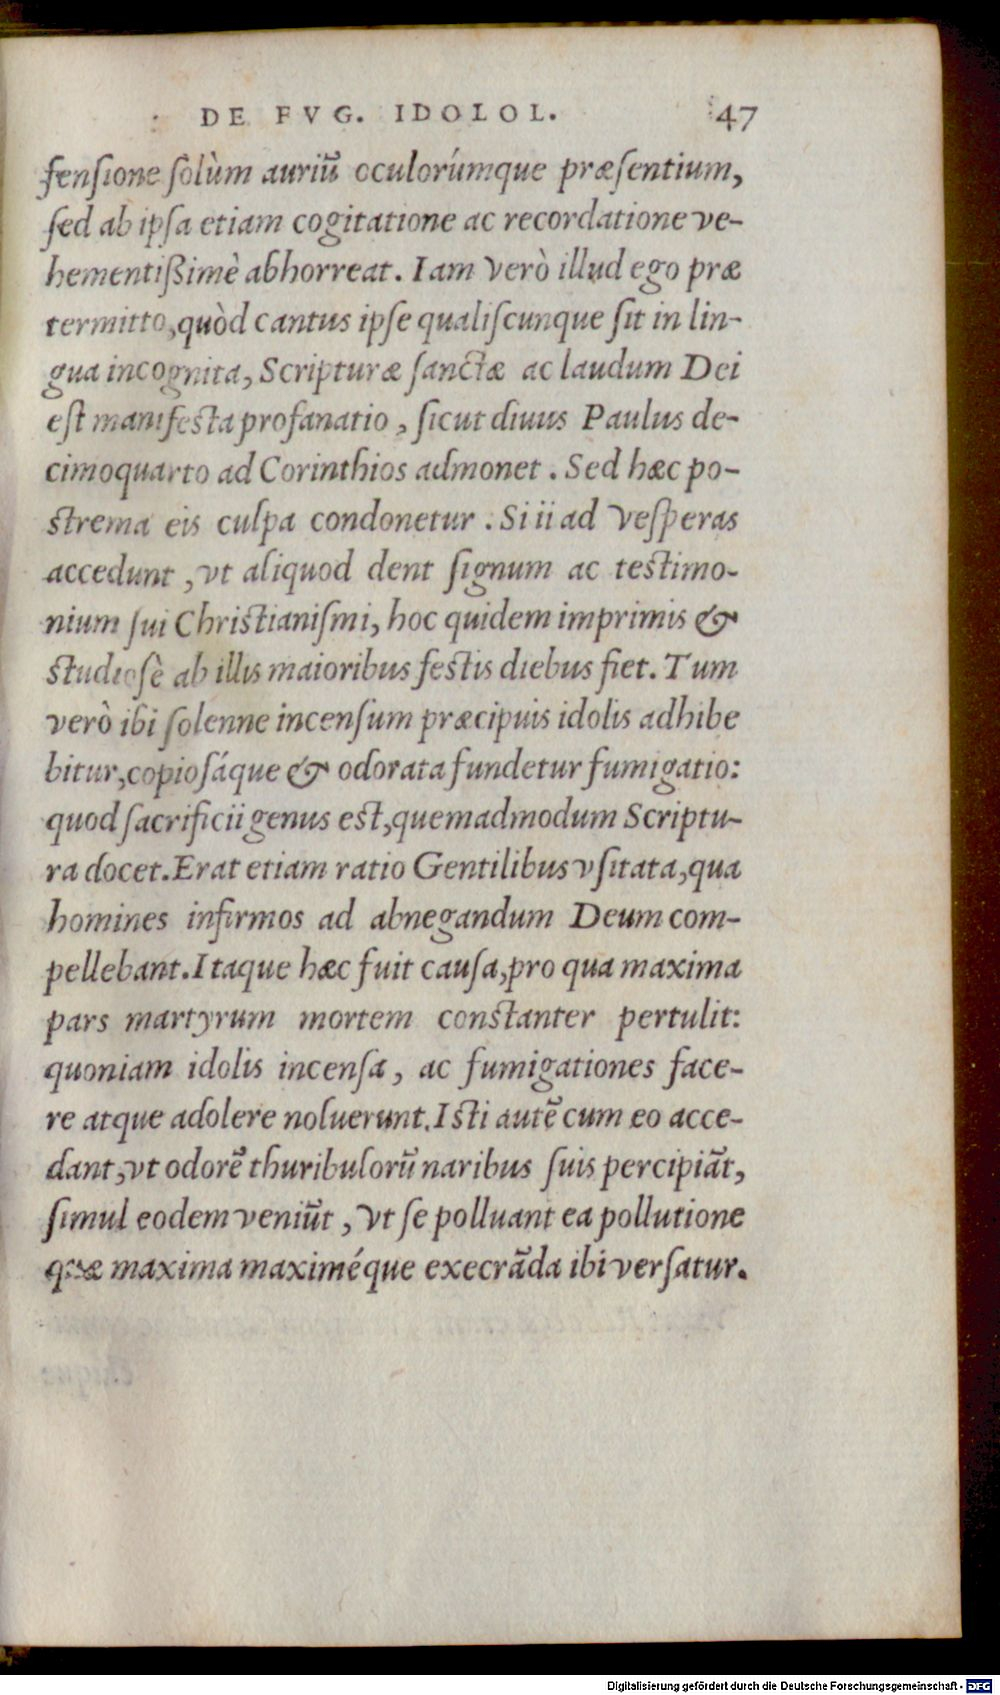 DE FVG. IDOLOL. 47
fensione solùm auriũ oculorúmque præsentium,
sed ab ipsa etiam cogitatione ac recordatione ve-
hementißimè abhorreat. Iam verò illud ego præ
termitto, quòd cantus ipse qualiscunque sit in lin-
gua incognita, Scripturæ sanctæ ac laudum Dei
est manifesta profanatio, sicut diuus Paulus de-
cimoquarto ad Corinthios admonet. Sed hæc po-
strema eis culpa condonetur. Si ii ad vesperas
accedunt, vt aliquod dent signum ac testimo-
nium sui Christianismi, hoc quidem imprimis &
studiosè ab illis maioribus festis diebus fiet. Tum
verò ibi solenne incensum præcipuis idolis adhibe
bitur, copiosáque & odorata fundetur fumigatio:
quod sacrificii genus est, quemadmodum Scriptu-
ra docet. Erat etiam ratio Gentilibus vsitata, qua
homines infirmos ad abnegandum Deum com-
pellebant. Itaque hæc fuit causa, pro qua maxima
pars martyrum mortem constanter pertulit:
quoniam idolis incensa, ac fumigationes face-
re atque adolere noluerunt. Isti autẽ cum eo acce-
dant, vt odorẽ thuribulorũ naribus suis percipiãt,
simul eodem veniũt, vt se polluant ea pollutione
quæ maxima maximéque execrãda ibi versatur.
Digitalisierung gefördert durch die Deutsche Forschungsgemeinschaft - DFG